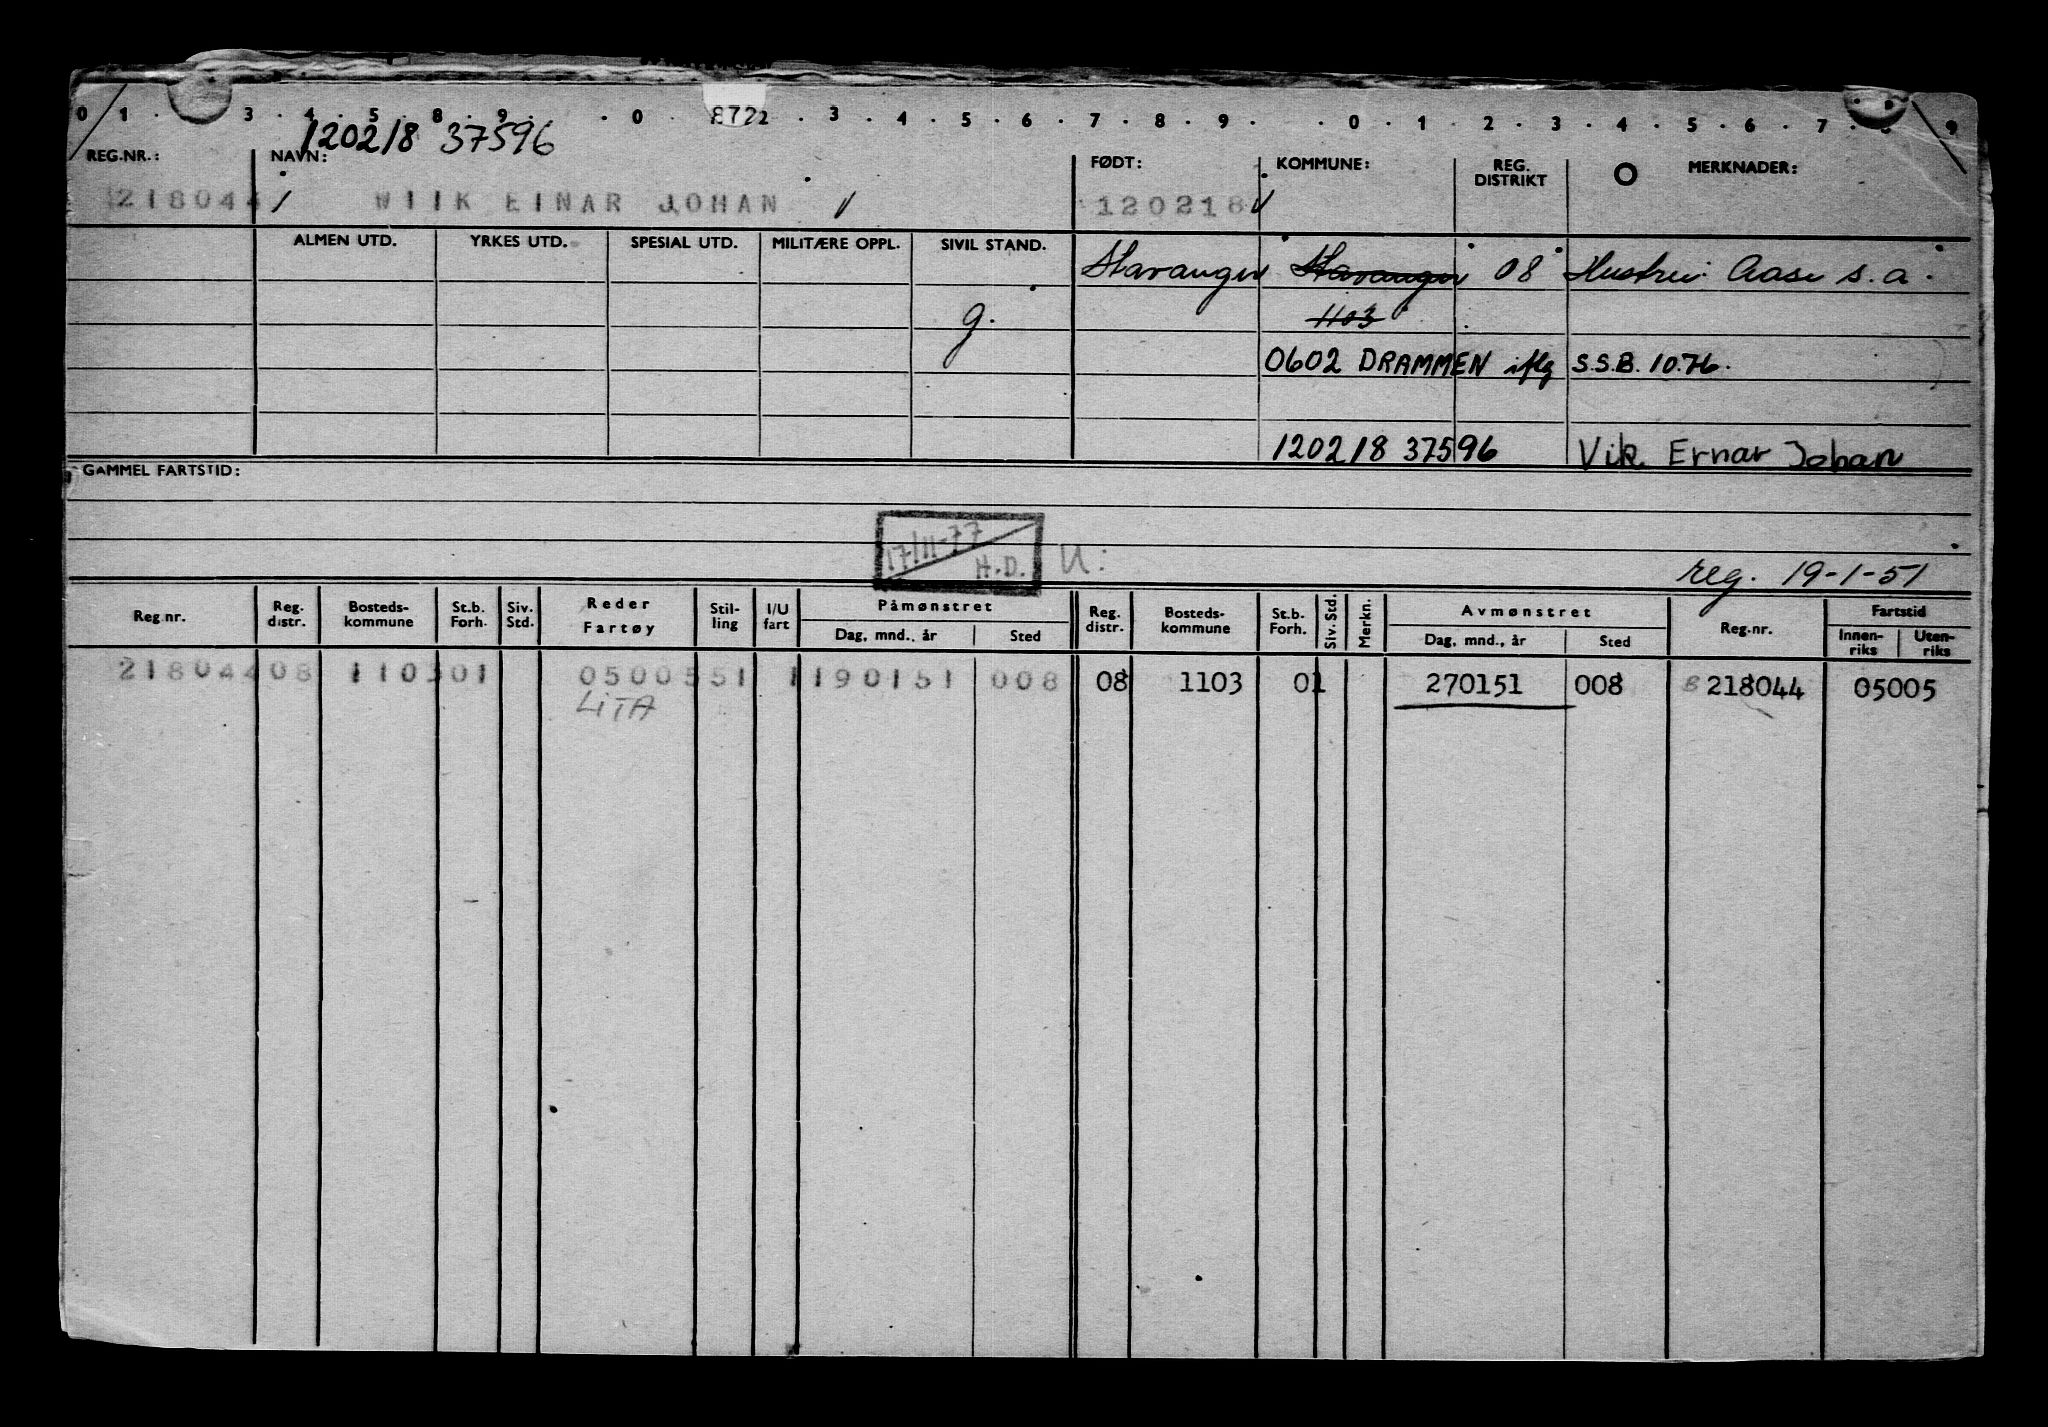 0 1 . 3 . 4 . 5 . 8 . 9 . . 0 . 872 2 . 3 . 4 . 5 . 6 . 7 . 8 . 9 . . 0 . 1 . 2 . 3 . 4 . 5 . 6 . 7 . 8 . 9
120218 37596
REG.NR.: NAVN: FØDT: KOMMUNE: REG. DISTRIKT MERKNADER:
218044 WIIK EINAR JOHAN 120218
ALMEN UTD. YRKES UTD. SPESIAL UTD. MILITÆRE OPPL. SIVIL STAND.
Stavanger Stavanger 08 Hustru: Aase s.a.
g. 1103
0602 DRAMMEN iflg S.S.B. 10.76.
120218 37596 Vik Ernar Johan
GAMMEL FARTSTID:
17/11-77 H.D. U:
reg. 19-1-51
Reg.nr. Reg. distr. Bosteds- kommune St.b. Forh. Siv. Std. Reder Fartøy Stil- ling I/U fart Påmønstret Dag, mnd., år Sted Reg. distr. Bosteds- kommune St.b. Forh. Siv. Std. Merkn. Avmønstret Dag, mnd., år Sted Reg.nr. Fartstid Innen- riks Uten- riks
218044 08 1103 01 05005 51 1 190151 008 08 1103 01 270151 008 8 218044 05005
LITA